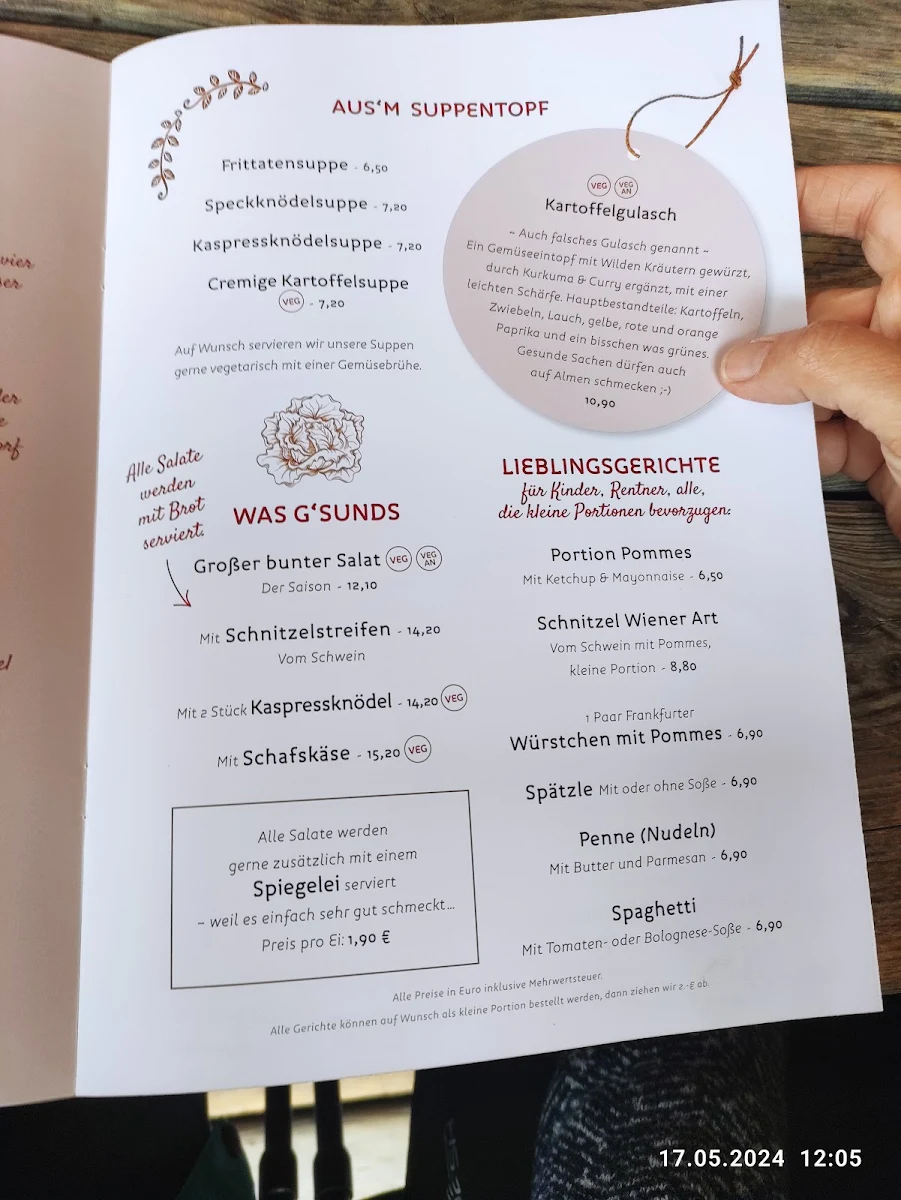 AUS'M SUPPENTOPF
Frittatensuppe - 6,50
Speckknödelsuppe - 7,20
Kaspressknödelsuppe - 7,20
Cremige Kartoffelsuppe
VEG - 7,20
Auf Wunsch servieren wir unsere Suppen
gerne vegetarisch mit einer Gemüsebrühe.
VEG VEGAN
Kartoffelgulasch
~ Auch falsches Gulasch genannt ~
Ein Gemüseeintopf mit Wilden Kräutern gewürzt,
durch Kurkuma & Curry ergänzt, mit einer
leichten Schärfe. Hauptbestandteile: Kartoffeln,
Zwiebeln, Lauch, gelbe, rote und orange
Paprika und ein bisschen was grünes.
Gesunde Sachen dürfen auch
auf Almen schmecken ;-)
10,90
Alle Salate
werden
mit Brot
serviert.
WAS G'SUNDS
Großer bunter Salat VEG VEGAN
Der Saison - 12,10
Mit Schnitzelstreifen - 14,20
Vom Schwein
Mit 2 Stück Kaspressknödel - 14,20 VEG
Mit Schafskäse - 15,20 VEG
Alle Salate werden
gerne zusätzlich mit einem
Spiegelei serviert
~ weil es einfach sehr gut schmeckt...
Preis pro Ei: 1,90 €
LIEBLINGSGERICHTE
für Kinder, Rentner, alle,
die kleine Portionen bevorzugen:
Portion Pommes
Mit Ketchup & Mayonnaise - 6,50
Schnitzel Wiener Art
Vom Schwein mit Pommes,
kleine Portion - 8,80
1 Paar Frankfurter
Würstchen mit Pommes - 6,90
Spätzle Mit oder ohne Soße - 6,90
Penne (Nudeln)
Mit Butter und Parmesan - 6,90
Spaghetti
Mit Tomaten- oder Bolognese-Soße - 6,90
Alle Preise in Euro inklusive Mehrwertsteuer.
Alle Gerichte können auf Wunsch als kleine Portion bestellt werden, dann ziehen wir 2.-€ ab.
17.05.2024 12:05